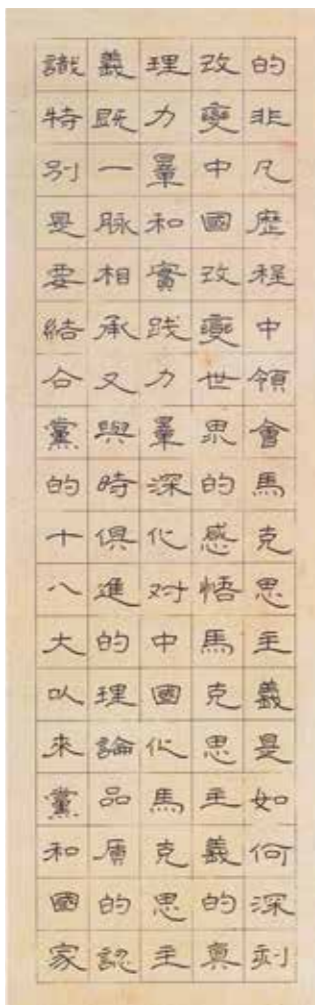 的非凡歷程中領會馬克思主義是如何深刻
改變中國改變世界的感悟馬克思主義的真
理力量和實踐力量深化对中國化馬克思主
義既一脉相承又與時俱進的理論品质的認
識特别是要結合黨的十八大以來黨和國家